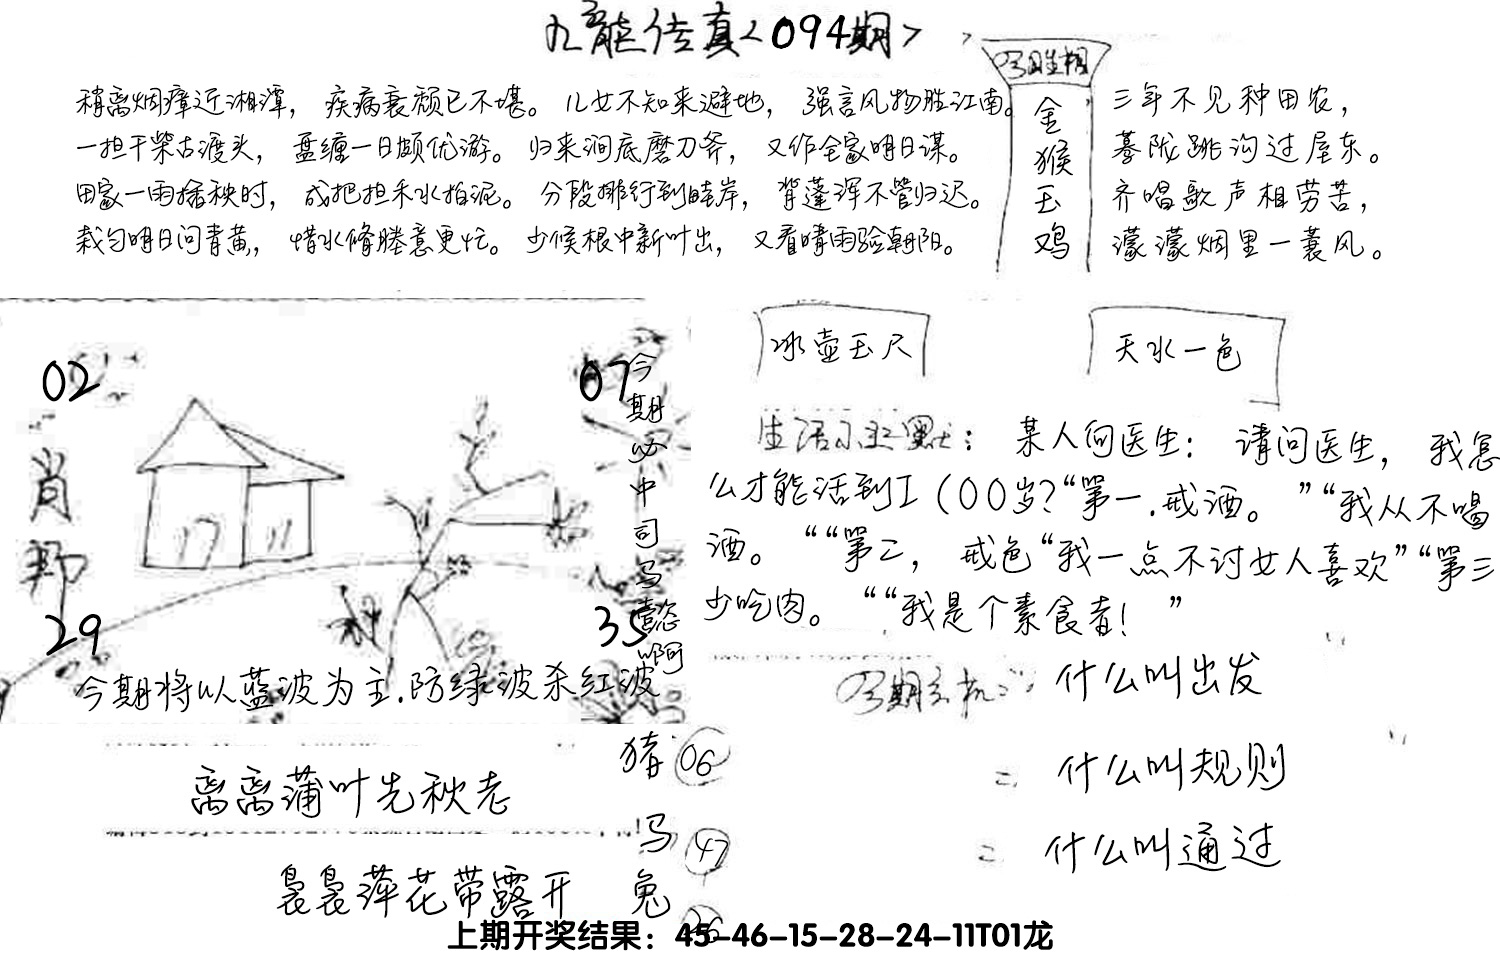 九龙传真<094期>
稍离烟瘴近湘潭，疾病衰颓已不堪。儿女不知来避地，强言风物胜江南。
一担干柴古渡头，盘缠一日颇优游。归来涧底磨刀斧，又作全家明日谋。
田家一雨插秧时，成把担禾水拍泥。分段排行到畦岸，背蓬浑不管归迟。
栽匀明日问青黄，惜水脩塍意更忙。少候根中新叶出，又看晴雨验朝阳。
金
猴
玉
鸡
三年不见种田农，
蓦陇跳沟过屋东。
齐唱歌声相劳苦，
濛濛烟里一蓑风。
冰壶玉尺
天水一色
02
07
肖
29
35
今期必中司马懿啊
今期将以蓝波为主.防绿波杀红波
生活小幽默：某人问医生：请问医生，我怎
么才能活到I(00岁?“第一.戒酒。”“我从不喝
酒。““第二，戒色“我一点不讨女人喜欢”“第三
少吃肉。““我是个素食者！”
什么叫出发
= 什么叫规则
= 什么叫通过
离离蒲叶先秋老
袅袅萍花带露开
猪 06
马 47
兔
上期开奖结果：45-46-15-28-24-11T01龙